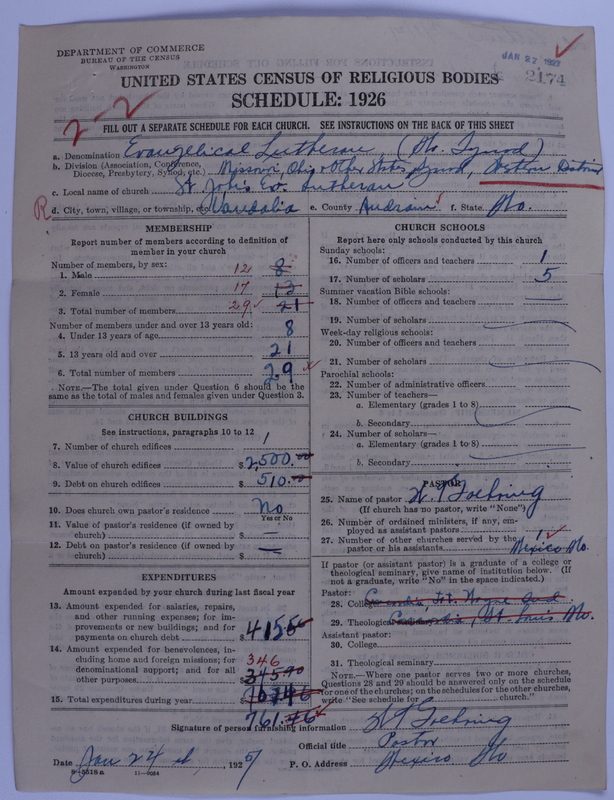 DEPARTMENT OF COMMERCE
BUREAU OF THE CENSUS
WASHINGTON
JAN 22 1927
2174
UNITED STATES CENSUS OF RELIGIOUS BODIES
SCHEDULE: 1926
2-2
FILL OUT A SEPARATE SCHEDULE FOR EACH CHURCH. SEE INSTRUCTIONS ON THE BACK OF THIS SHEET
a. Denomination Evangelical Lutheran, (Mo. Synod)
b. Division (Association, Conference, Diocese, Presbytery, Synod, etc.) Missouri, Ohio & other States Synod, Western District
c. Local name of church St. John's Ev. Lutheran
R d. City, town, village, or township, etc. Vandalia e. County Audrain f. State Mo.
MEMBERSHIP
Report number of members according to definition of member in your church
Number of members, by sex:
1. Male 12 8
2. Female 17 13
3. Total number of members 29 21
Number of members under and over 13 years old:
4. Under 13 years of age 8
5. 13 years old and over 21
6. Total number of members 29
NOTE.—The total given under Question 6 should be the same as the total of males and females given under Question 3.
CHURCH BUILDINGS
See instructions, paragraphs 10 to 12
7. Number of church edifices 1
8. Value of church edifices $ 2,500.00
9. Debt on church edifices $ 510.00
10. Does church own pastor's residence No
Yes or No
11. Value of pastor's residence (if owned by church) $ —
12. Debt on pastor's residence (if owned by church) $ —
EXPENDITURES
Amount expended by your church during last fiscal year
13. Amount expended for salaries, repairs, and other running expenses; for improvements or new buildings; and for payments on church debt $
14. Amount expended for benevolences, including home and foreign missions; for denominational support; and for all other purposes $ 346
15. Total expenditures during year $
761.46
CHURCH SCHOOLS
Report here only schools conducted by this church
Sunday schools:
16. Number of officers and teachers 1
17. Number of scholars 5
Summer vacation Bible schools:
18. Number of officers and teachers —
19. Number of scholars
Week-day religious schools:
20. Number of officers and teachers
21. Number of scholars
Parochial schools:
22. Number of administrative officers
23. Number of teachers—
a. Elementary (grades 1 to 8)
b. Secondary
24. Number of scholars—
a. Elementary (grades 1 to 8)
b. Secondary
PASTOR
25. Name of pastor
(If church has no pastor, write "None")
26. Number of ordained ministers, if any, employed as assistant pastors
27. Number of other churches served by the pastor or his assistants 1
Mexico Mo.
If pastor (or assistant pastor) is a graduate of a college or theological seminary, give name of institution below. (If not a graduate, write "No" in the space indicated.)
Pastor:
28. College Concordia, Ft. Wayne Ind.
29. Theological Concordia, St. Louis Mo.
Assistant pastor:
30. College
31. Theological seminary
NOTE.—Where one pastor serves two or more churches, Questions 28 and 29 should be answered only on the schedule for one of the churches; on the schedules for the other churches, write "See schedule for church."
Signature of person furnishing information
Official title Pastor
Date Jan 22 d, 1927 P. O. Address Mexico Mo
9-3518a 11-9084